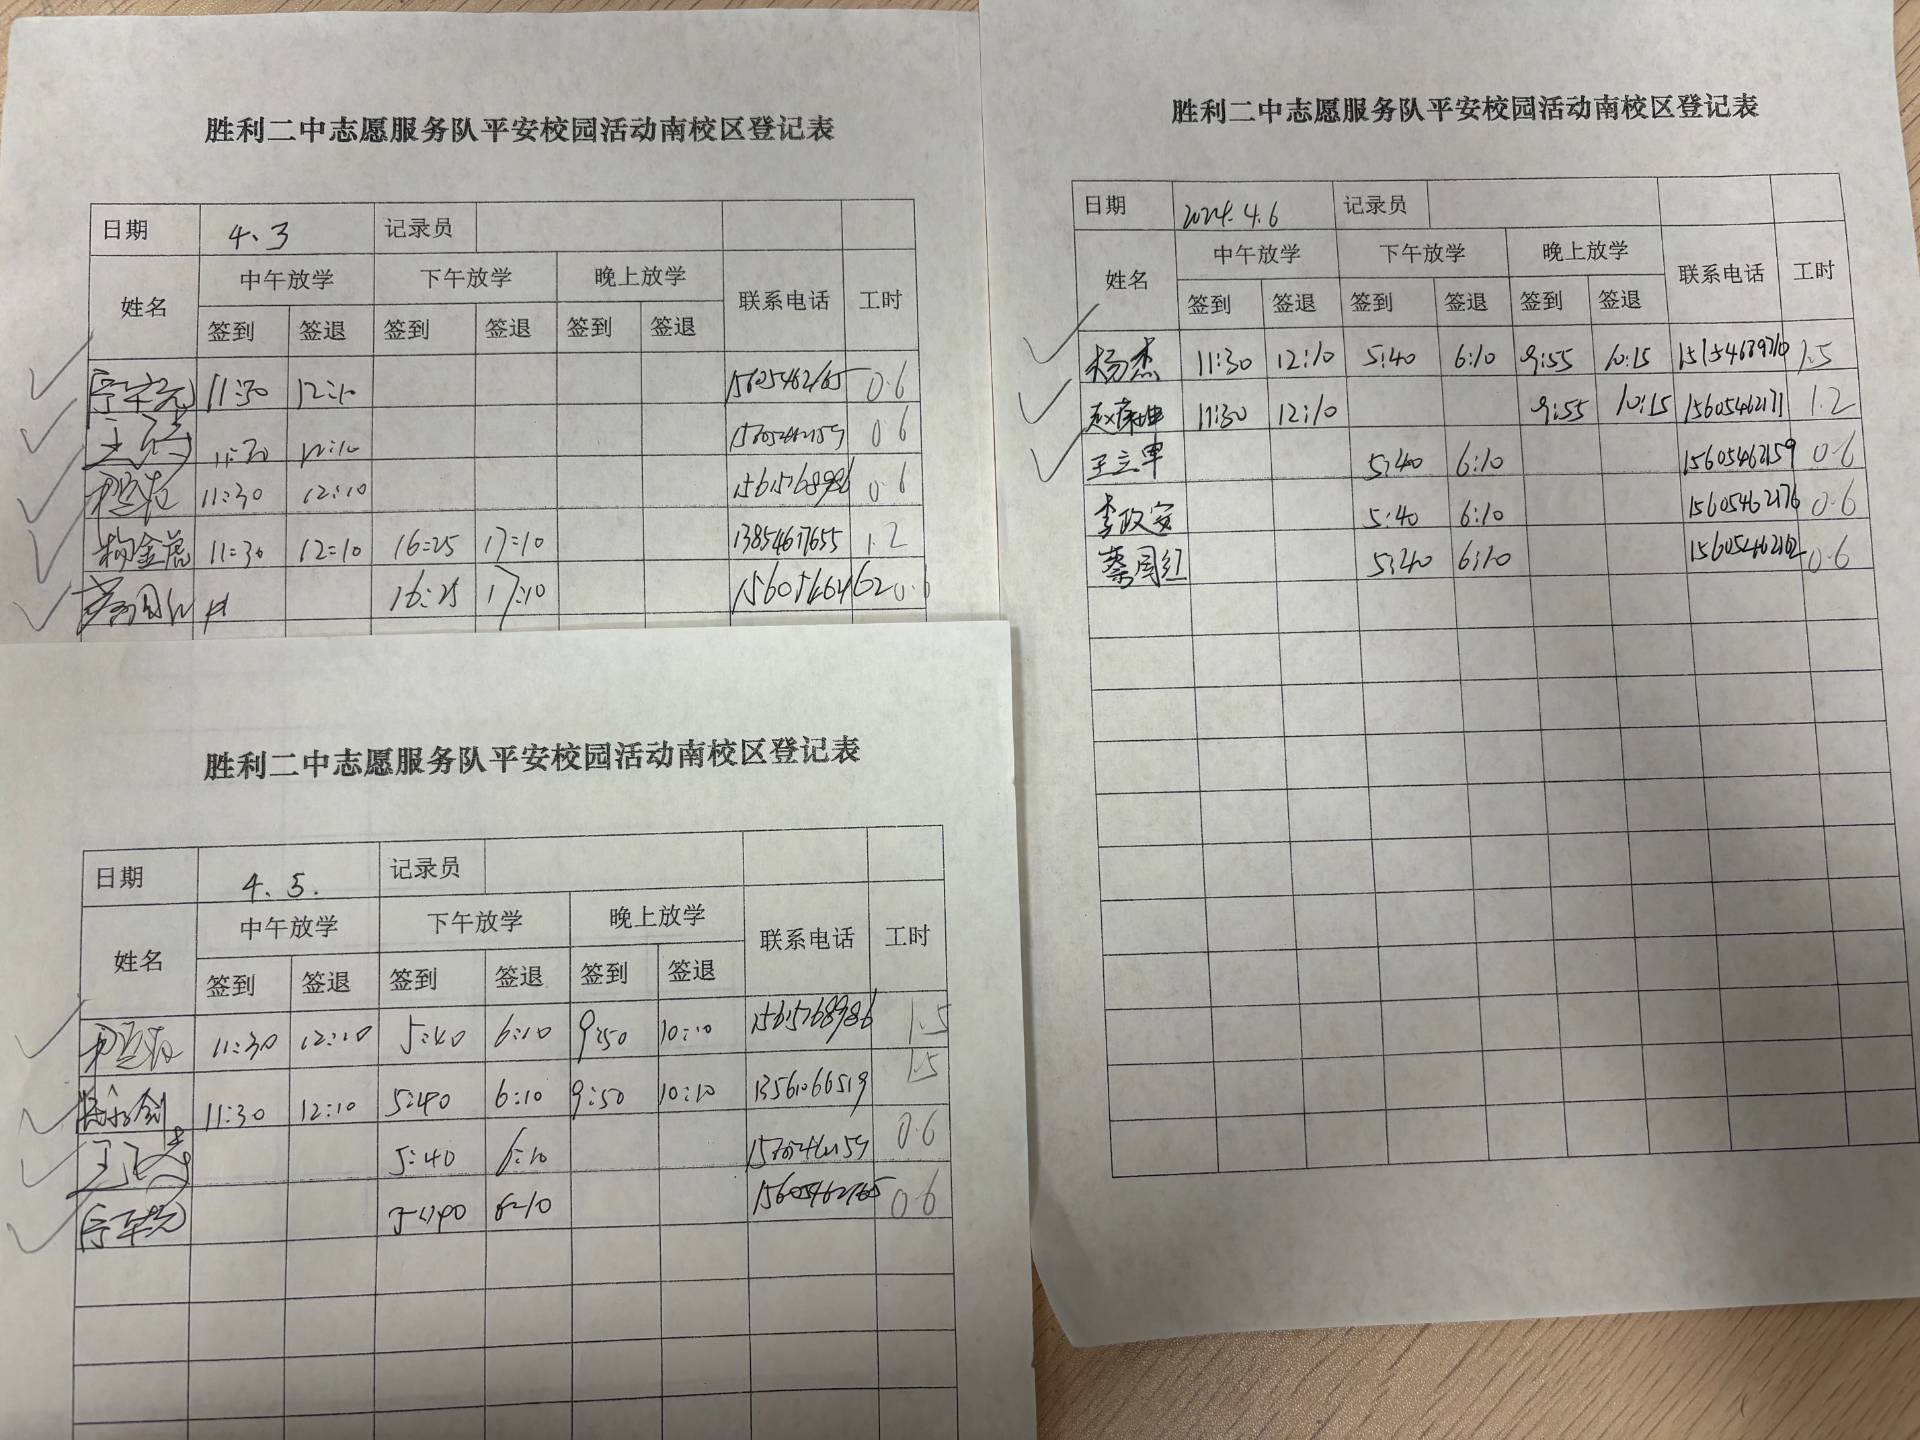 胜利二中志愿服务队平安校园活动南校区登记表
日期 4.3 记录员
姓名 中午放学 下午放学 晚上放学 联系电话 工时
签到 签退 签到 签退 签到 签退
11:30 12:10 0.6
11:30 12:10 0.6
11:30 12:10 15615768986 0.6
11:30 12:10 16:25 17:10 13854617655 1.2
16:25 17:10
胜利二中志愿服务队平安校园活动南校区登记表
日期 4.5. 记录员
姓名 中午放学 下午放学 晚上放学 联系电话 工时
签到 签退 签到 签退 签到 签退
11:30 12:10 5:40 6:10 9:50 10:10 15615768986 1.5
11:30 12:10 5:40 6:10 9:50 10:10 13561066519 1.5
5:40 6:10 0.6
5:40 6:10 0.6
胜利二中志愿服务队平安校园活动南校区登记表
日期 2024.4.6 记录员
姓名 中午放学 下午放学 晚上放学 联系电话 工时
签到 签退 签到 签退 签到 签退
杨杰 11:30 12:10 5:40 6:10 9:55 10:15 1.5
11:30 12:10 9:55 10:15 15605462171 1.2
王立军 5:40 6:10 15605462159 0.6
李政安 5:40 6:10 15605462176 0.6
蔡同红 5:40 6:10 15605462162 0.6